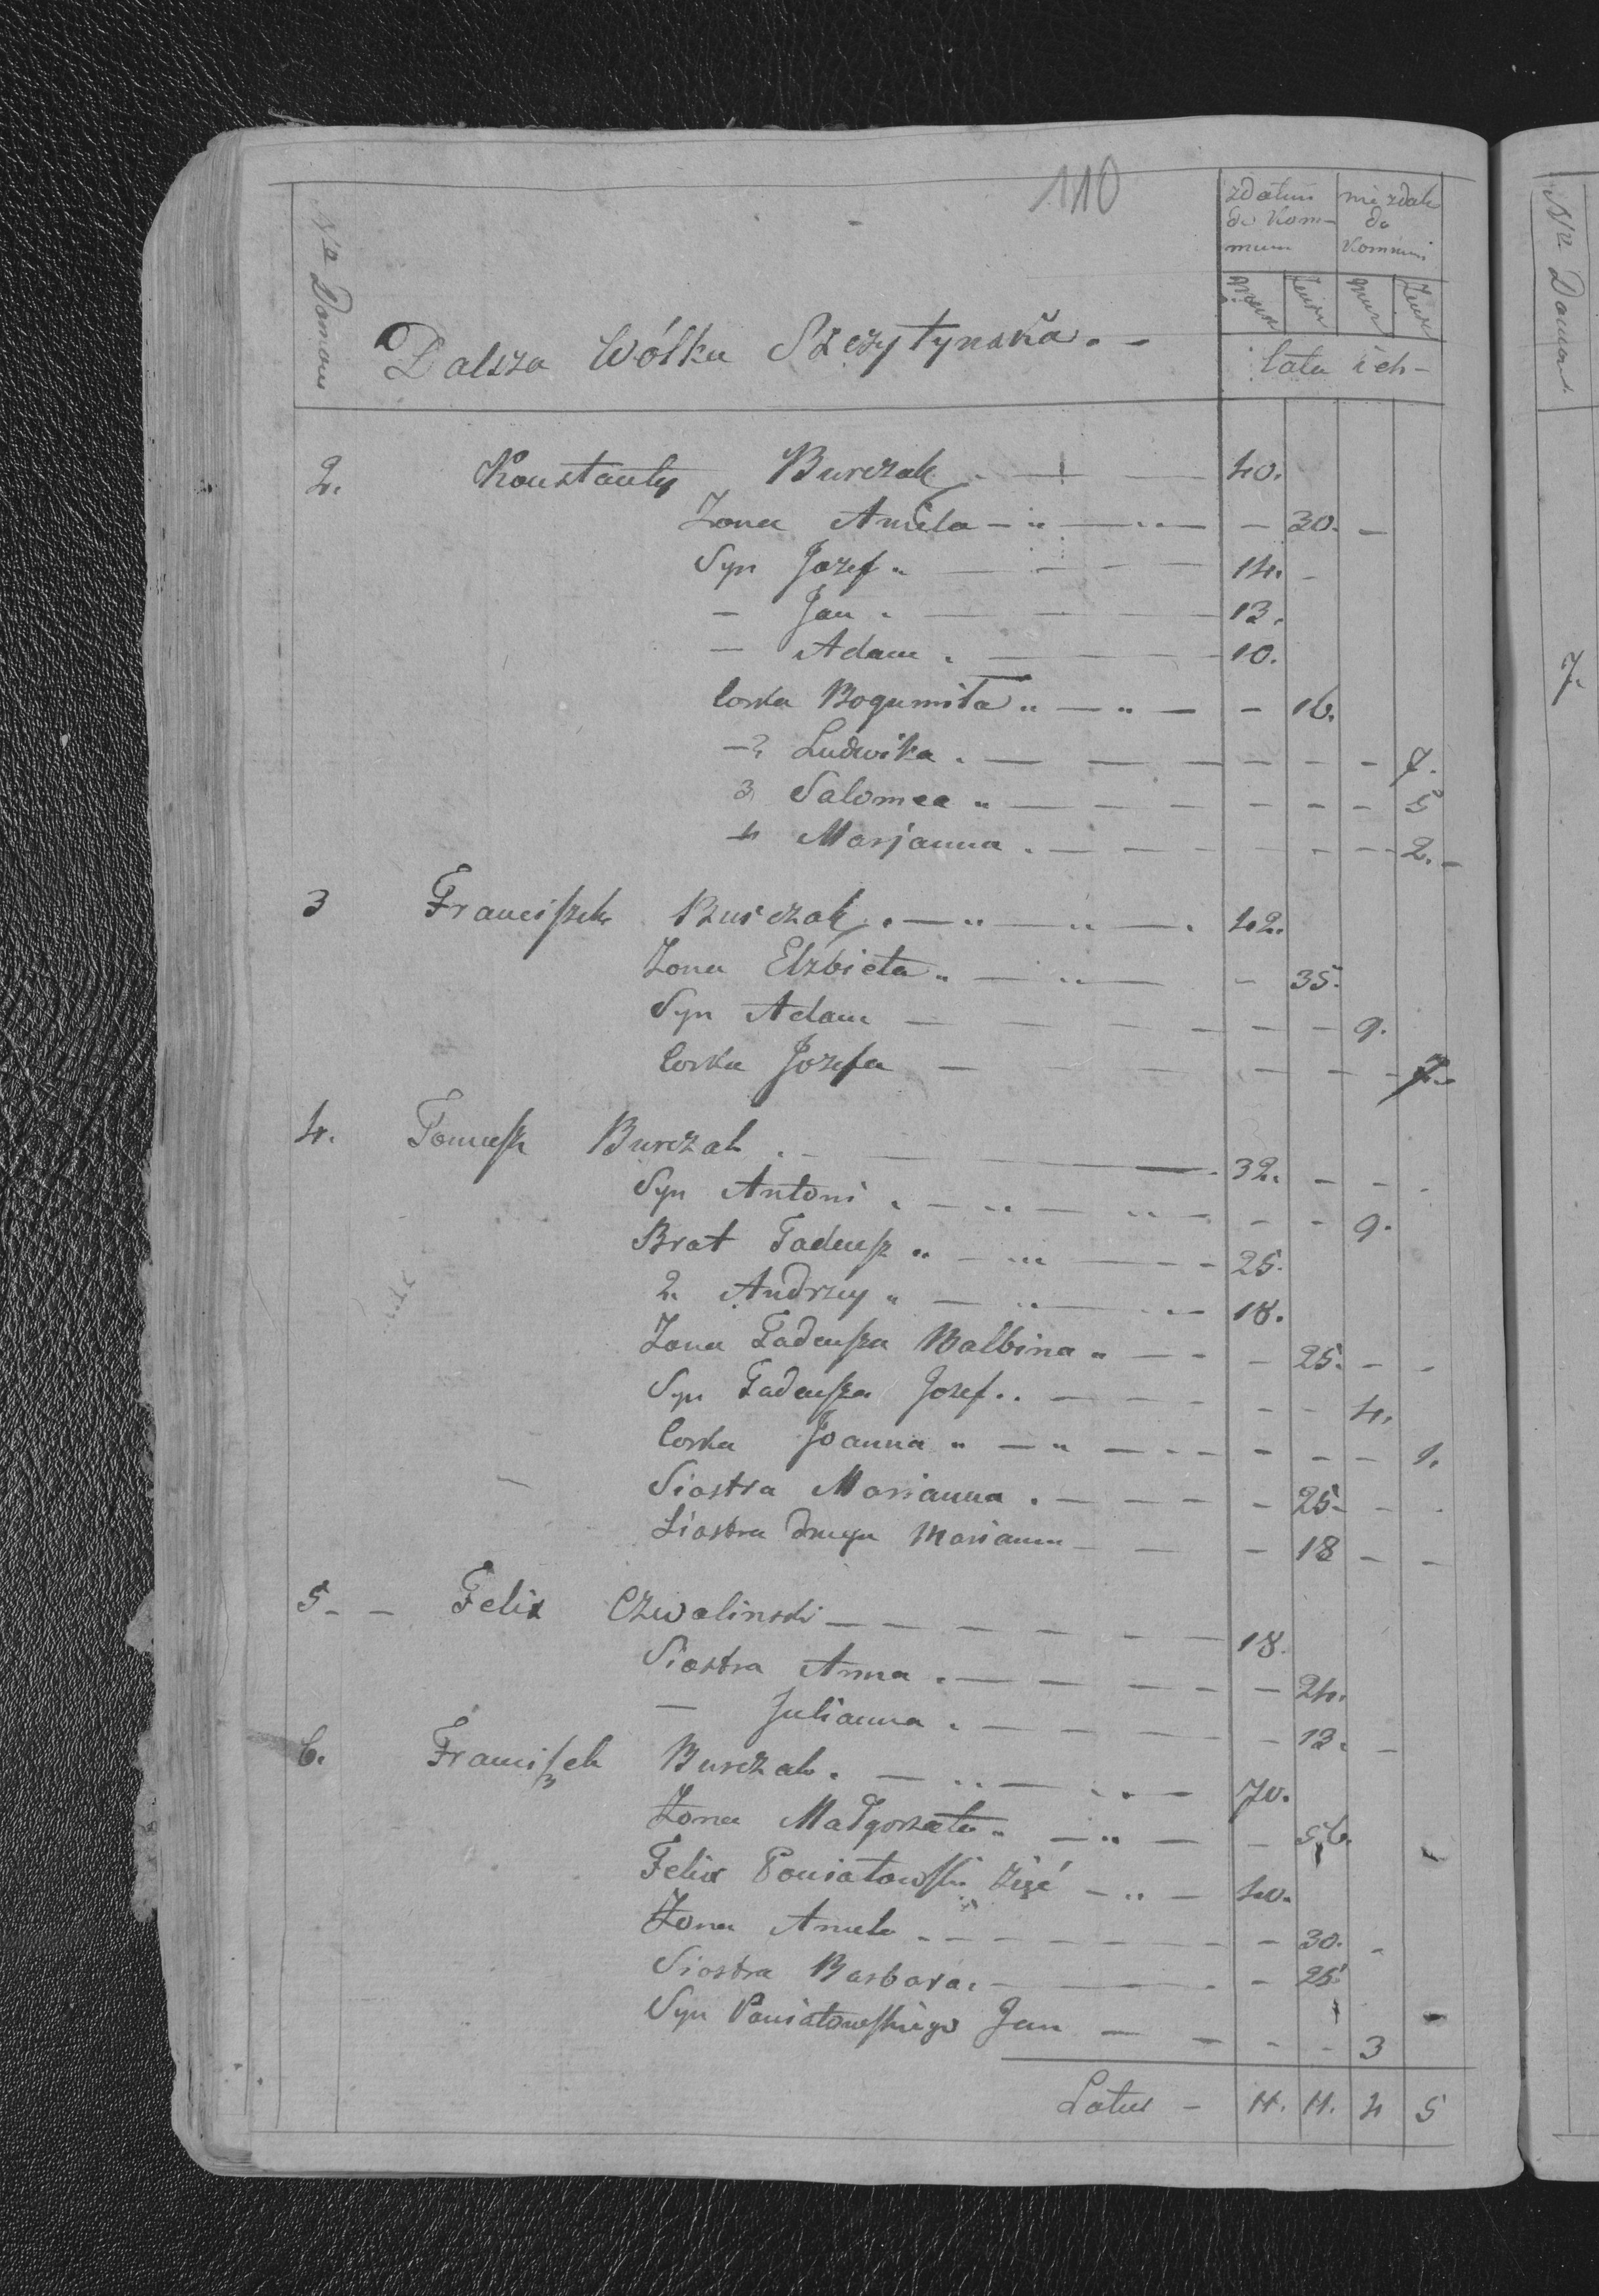 110
Nº Domow
zdatni do Kom-muni
nie zdatn do Kommuni
męzcz
Zensk
męz
Zensk
Dalsza Wólka Szczytynska. -
lata ich -
2. Konstanty Burczak - 40.
Zona Aniela - - 30. -
Syn Jozef - 14. -
- Jan - 13.
- Adam - 10.
Corka Bogumiła - - 16.
- 2 Ludwika - - - - 7.
3 Salomea - - - - 5
4 Marjanna - - - - 2. -
3 Franciszek Burczak - 42.
Zona Elzbieta - - 35.
Syn Adam - - - 9.
Corka Jozefa - - - - 7. -
4. Tomasz Burczak - 32. - - -
Syn Antoni - - - 9.
Brat Tadeusz - 25.
2. Andrzey - 18.
Zona Tadeusza Balbina - - 25. - -
Syn Tadeusza Jozef - - - 4.
Corka Joanna - - - - 1.
Siostra Marianna - - 25 - - -
Siostra druga Marianna - - 18 - -
5 - - Felix Czwalinski - 18.
Siostra Anna - - 24.
- Julianna - - 13. -
6. Franciszek Burczak - 70.
Zona Małgorzata - - 56.
Felix Poniatowski Zięć - 40.
Zona Aniela - - 30. -
Siostra Barbara - - 25.
Syn Poniatowskiego Jan - - - 3
Latus - 11. 11. 4 5
Nº Domow
7.